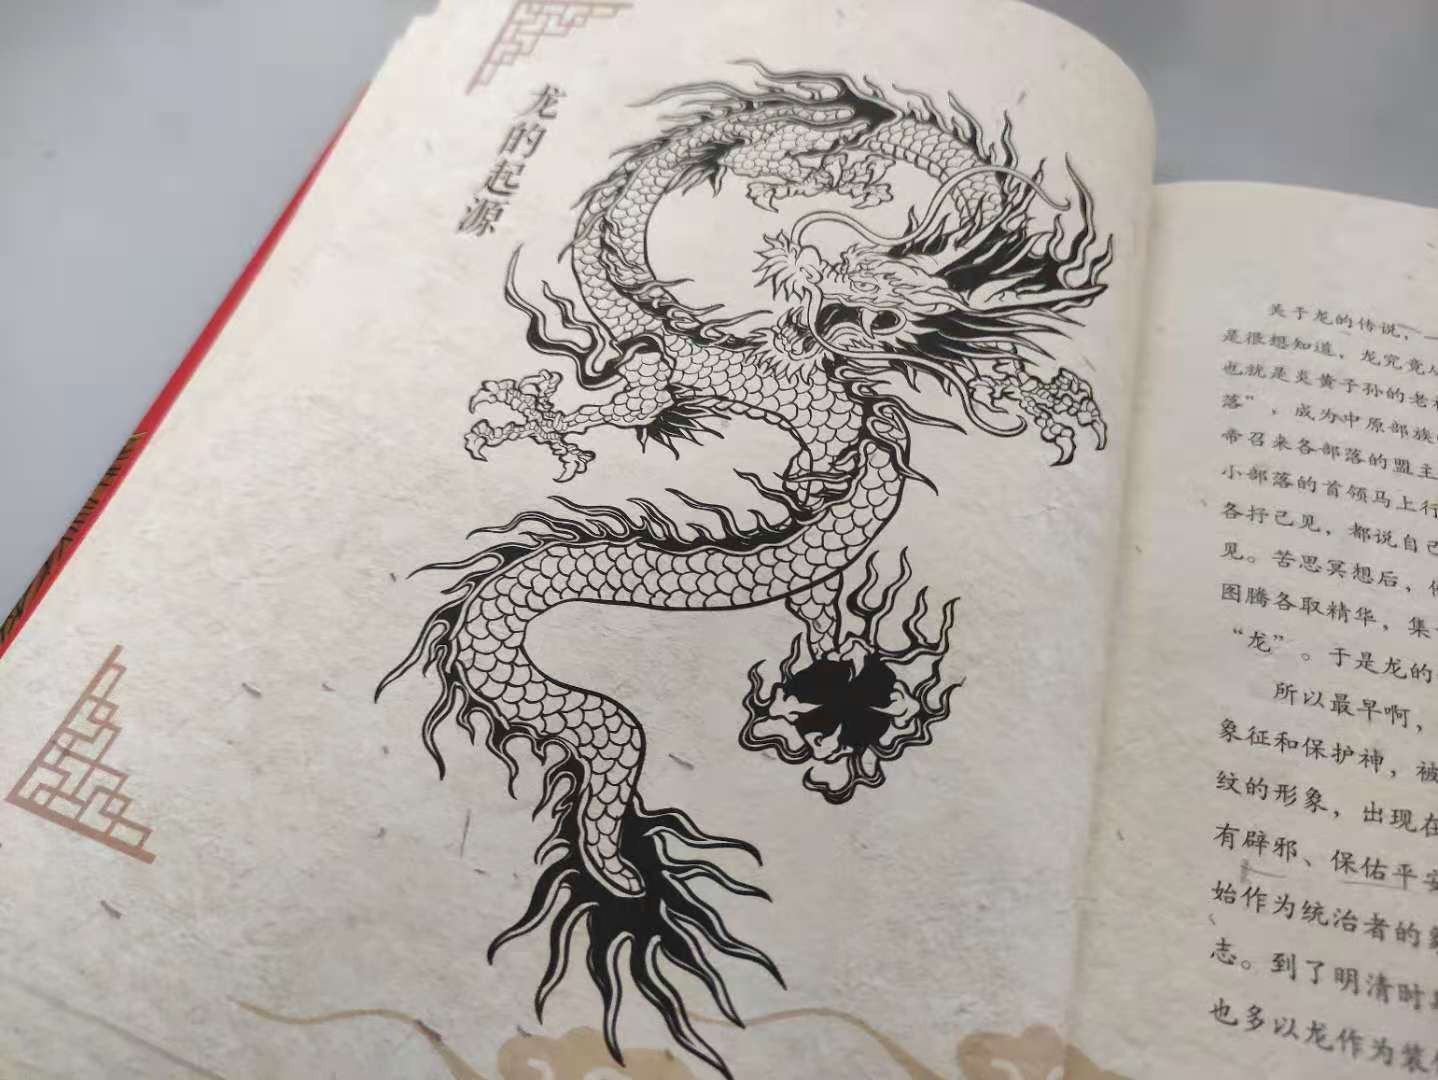 龙的起源
关于龙的传说，
是很想知道，龙究竟从
也就是炎黄子孙的老祖
落”，成为中原部族
帝召来各部落的盟主
小部落的首领马上行
各抒己见，都说自己
见。苦思冥想后，
图腾各取精华，集
“龙”。于是龙的
所以最早啊，
象征和保护神，被
纹的形象，出现在
有辟邪、保佑平安
始作为统治者的象
志。到了明清时期
也多以龙作为装